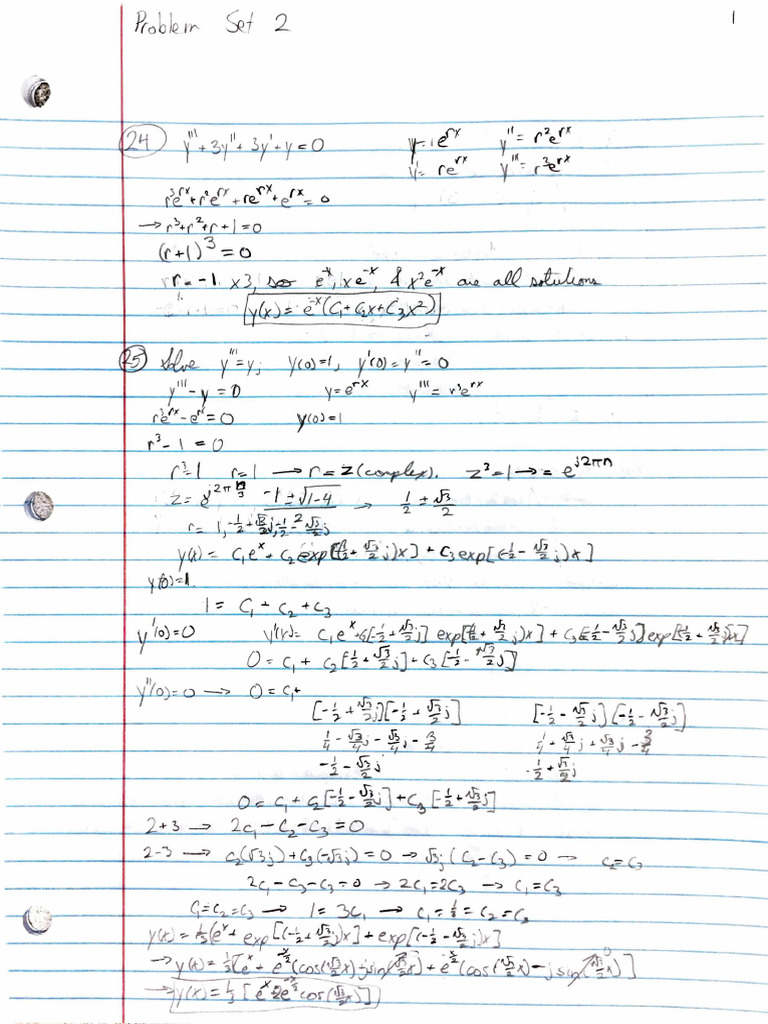 Problem Set 2 1
24 y''' + 3y'' + 3y' + y = 0 y = e^{rx} y'' = r²e^{rx}
y' = re^{rx} y''' = r³e^{rx}
r³e^{rx} + r²e^{rx} + re^{rx} + e^{rx} = 0
→ r³ + r² + r + 1 = 0
(r+1)³ = 0
r = -1 x3, so e^{-x}, xe^{-x}, & x²e^{-x} are all solutions
y(x) = e^{-x}(C₁ + C₂x + C₃x²)
25 Solve y''' = y; y(0) = 1, y'(0) = y''(0) = 0
y''' - y = 0 y = e^{rx} y''' = r³e^{rx}
r³e^{rx} - e^{rx} = 0 y(0) = 1
r³ - 1 = 0
r³=1 r=1 → r = z (complex). z³ = 1 → = e^{j2πn}
z = e^{j2πn/3} (-1 ± √(1-4))/2 → 1/2 ± √3/2
r = 1, -1/2 + √3/2 j, -1/2 - √3/2 j
y(x) = C₁e^x + C₂ exp[(-1/2 + √3/2 j)x] + C₃ exp[(-1/2 - √3/2 j)x]
y(0)=1
1 = C₁ + C₂ + C₃
y'(0)=0 y'(x) = C₁e^x + C₂[-1/2 + √3/2 j] exp[(-1/2 + √3/2 j)x] + C₃[-1/2 - √3/2 j] exp[(-1/2 + √3/2 j)x]
0 = C₁ + C₂[-1/2 + √3/2 j] + C₃[-1/2 - √3/2 j]
y''(0) = 0 → 0 = C₁ +
[-1/2 + √3/2 j][-1/2 + √3/2 j] [-1/2 - √3/2 j][-1/2 - √3/2 j]
1/4 - √3/4 j - √3/4 j - 3/4 1/4 + √3/4 j + √3/4 j - 3/4
-1/2 - √3/2 j -1/2 + √3/2 j
0 = C₁ + C₂[-1/2 - √3/2 j] + C₃[-1/2 + √3/2 j]
2+3 → 2C₁ - C₂ - C₃ = 0
2-3 → C₂(√3 j) + C₃(-√3 j) = 0 → √3 j (C₂ - C₃) = 0 → C₂ = C₃
2C₁ - C₃ - C₃ = 0 → 2C₁ = 2C₃ → C₁ = C₃
C₁ = C₂ = C₃ → 1 = 3C₁ → C₁ = 1/3 = C₂ = C₃
y(x) = 1/3(e^x + exp[(-1/2 + √3/2 j)x] + exp[(-1/2 - √3/2 j)x]
→ y(x) = 1/3[e^x + e^{-x/2}(cos(√3/2 x) + j sin(√3/2 x) + e^{-x/2}(cos(√3/2 x) - j sin(√3/2 x)] 0
→ y(x) = 1/3[e^x + 2e^{-x/2} cos(√3/2 x)]